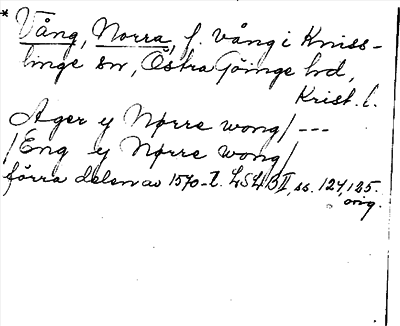 * Vång, Norra, f. vång i Kniss-
linge sn, Östra Göinge hd,
Krist. l.
Ager y Nørre wong/ ---
/Eng y Nørre wong/
förra delen av 1570-t. LSLB II, ss. 124, 125.
orig.